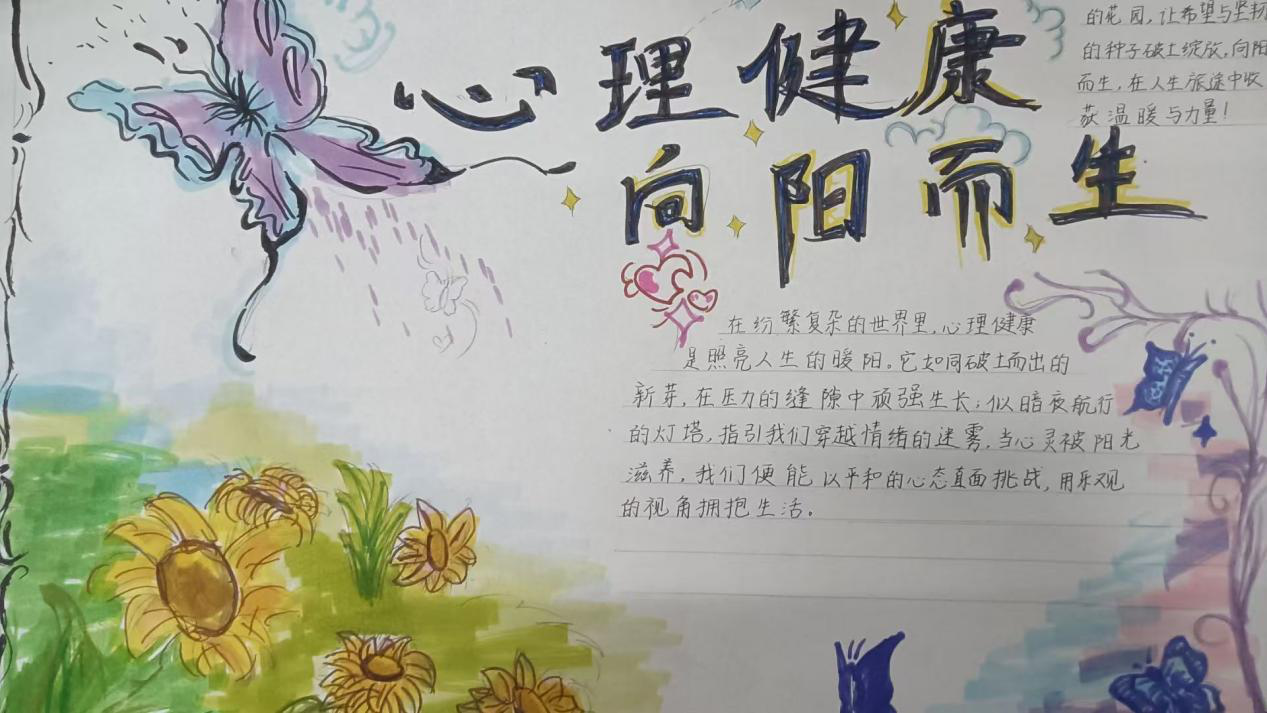 心理健康
向阳而生
的花园,让希望与坚韧
的种子破土绽放,向阳
而生,在人生旅途中收
获温暖与力量!
在纷繁复杂的世界里,心理健康
是照亮人生的暖阳。它如同破土而出的
新芽,在压力的缝隙中顽强生长;似暗夜航行
的灯塔,指引我们穿越情绪的迷雾。当心灵被阳光
滋养,我们便能以平和的心态直面挑战,用乐观
的视角拥抱生活。